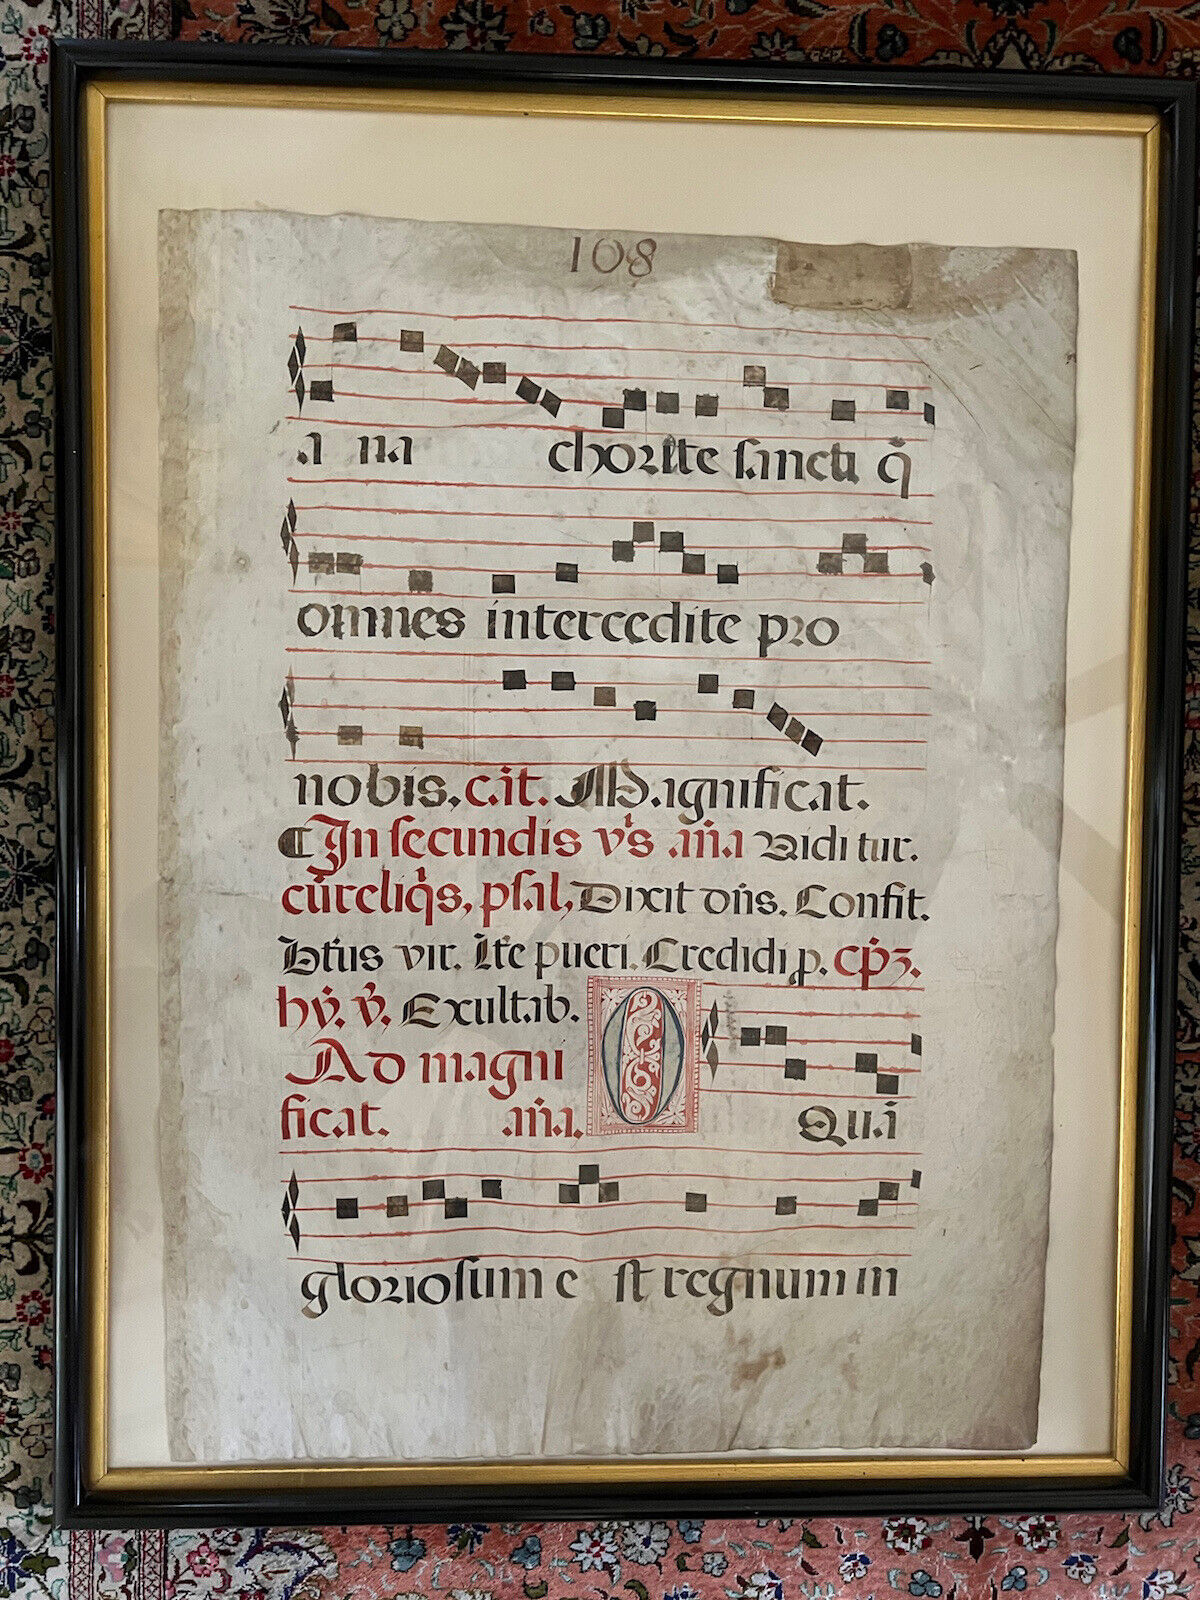 108
a na chorite sancti q̃
omnes intercedite pro
nobis. cit. Magnificat.
¶ In secundis vʼs añã Vidi tur.
cũ reliqʼs, psal, Dixit dñs. Confit.
btũs vir. Ite pueri. Credidi p. cpʒ.
hỹ. ṽ, Exultab.
Ad magni
ficat. añã. O Quã
gloriosum e st regnum in